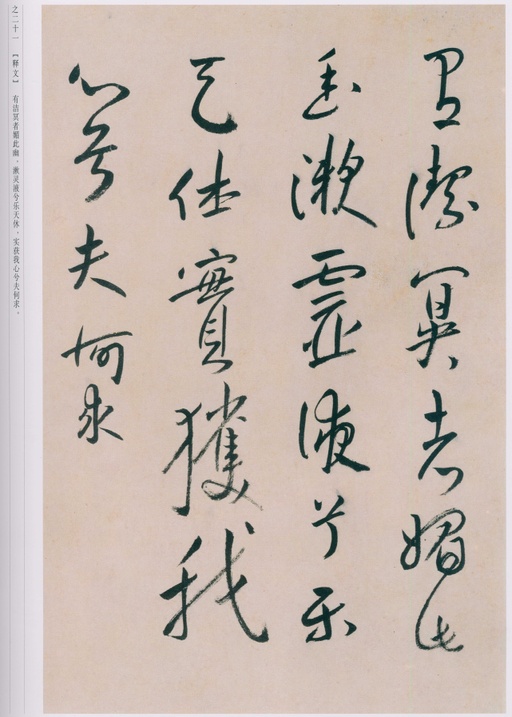 有潔冥者媚此
幽漱靈液兮樂
天休實獲我
心兮夫何求
之二十一 【释文】 有洁冥者媚此幽，漱灵液兮乐天休，实获我心兮夫何求。